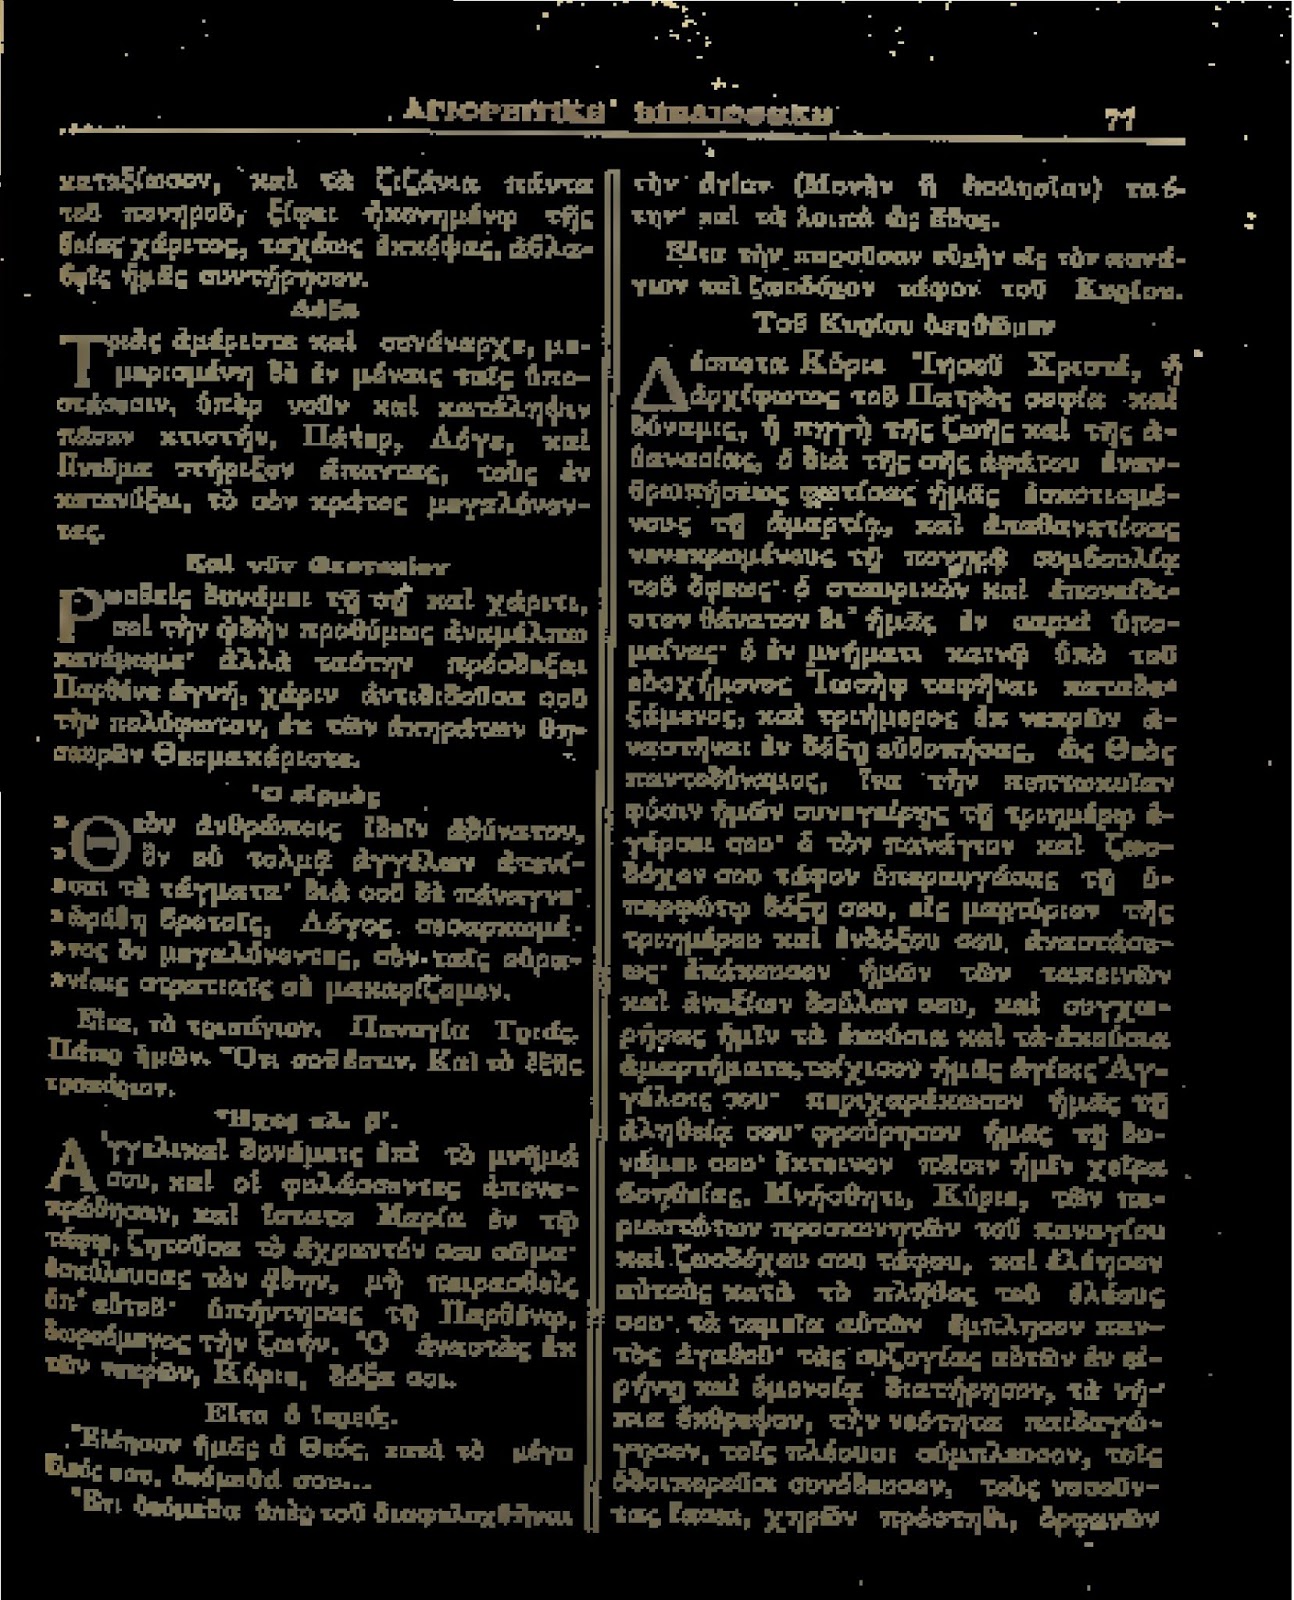 ΑΓΙΟΡΕΙΤΙΚΗ ΒΙΒΛΙΟΘΗΚΗ 71
καταξίωσον, καὶ τὰ ζιζάνια πάντα
τοῦ πονηροῦ, ξίφει ἠκονημένῳ τῆς
θείας χάριτος, ταχέως ἐκκόψας, ἀβλα-
βεῖς ἡμᾶς συντήρησον.
Δόξα
Τριὰς ἀμέριστε καὶ συνάναρχε, με-
μερισμένη δὲ ἐν μόναις ταῖς ὑπο-
στάσεσιν, ὑπὲρ νοῦν καὶ κατάληψιν
πᾶσαν κτιστήν, Πάτερ, Λόγε, καὶ
Πνεῦμα στήριξον ἅπαντας, τοὺς ἐν
κατανύξει, τὸ σὸν κράτος μεγαλύνον-
τας.
Καὶ νῦν Θεοτοκίον
Ῥωσθεὶς δυνάμει τῇ σῇ καὶ χάριτι,
σοὶ τὴν ᾠδὴν προθύμως ἀναμέλπω
πανάμωμε· ἀλλὰ ταύτην πρόσδεξαι
Παρθένε ἁγνή, χάριν ἀντιδιδοῦσα σοῦ
τὴν πολύφωτον, ἐκ τῶν ἀκηράτων θη-
σαυρῶν Θεομακάριστε.
Ὁ εἱρμὸς
»Θεὸν ἀνθρώποις ἰδεῖν ἀδύνατον,
»ὃν οὐ τολμᾷ ἀγγέλων ἀτενί-
»σαι τὰ τάγματα· διὰ σοῦ δὲ πάναγνε·
»ὡράθη βροτοῖς, Λόγος σεσαρκωμέ-
»νος ὃν μεγαλύνοντες, σὺν ταῖς οὐρα-
»νίαις στρατιαῖς σὲ μακαρίζομεν.
Εἶτα, τὸ τρισάγιον. Παναγία Τριάς,
Πάτερ ἡμῶν. Ὅτι σοῦ ἐστιν. Καὶ τὸ ἑξῆς
τροπάριον.
Ἦχος πλ. β΄.
Ἀγγελικαὶ δυνάμεις ἐπὶ τὸ μνῆμά
σου, καὶ οἱ φυλάσσοντες ἀπενε-
κρώθησαν, καὶ ἵστατο Μαρία ἐν τῷ
τάφῳ, ζητοῦσα τὸ ἄχραντόν σου σῶμα·
ἐσκύλευσας τὸν ᾅδην, μὴ πειρασθεὶς
ὑπ' αὐτοῦ· ὑπήντησας τῇ Παρθένῳ,
δωρούμενος τὴν ζωήν. Ὁ ἀναστὰς ἐκ
τῶν νεκρῶν, Κύριε, δόξα σοι.
Εἶτα ὁ ἱερεύς.
Ἐλέησον ἡμᾶς ὁ Θεός, κατὰ τὸ μέγα
ἔλεός σου, δεόμεθά σου...
Ἔτι δεόμεθα ὑπὲρ τοῦ διαφυλαχθῆναι
τὴν ἁγίαν (Μονὴν ἢ ἐκκλησίαν) ταύ-
την· καὶ τὰ λοιπὰ ὡς ἔθος.
Εἶτα τὴν παροῦσαν εὐχὴν εἰς τὸν πανά-
γιον καὶ ζωοδόχον τάφον τοῦ Κυρίου.
Τοῦ Κυρίου δεηθῶμεν
Δέσποτα Κύριε Ἰησοῦ Χριστέ, ἡ
ἀρχίφωτος τοῦ Πατρὸς σοφία καὶ
δύναμις, ἡ πηγὴ τῆς ζωῆς καὶ τῆς ἀ-
θανασίας, ὁ διὰ τῆς σῆς ἀφάτου ἐναν-
θρωπήσεως φωτίσας ἡμᾶς ἐσκοτισμέ-
νους τῇ ἁμαρτίᾳ, καὶ ἀπαθανατίσας
νενεκρωμένους τῇ πονηρᾷ συμβουλίᾳ
τοῦ ὄφεως· ὁ σταυρικὸν καὶ ἐπονείδι-
στον θάνατον δι' ἡμᾶς ἐν σαρκὶ ὑπο-
μείνας· ὁ ἐν μνήματι καινῷ ὑπὸ τοῦ
εὐσχήμονος Ἰωσὴφ ταφῆναι καταδε-
ξάμενος, καὶ τριήμερος ἐκ νεκρῶν ἀ-
ναστῆναι ἐν δόξῃ εὐδοκήσας, ὡς Θεὸς
παντοδύναμος, ἵνα τὴν πεπτωκυῖαν
φύσιν ἡμῶν συνεγείρῃς τῇ τριημέρῳ ἐ-
γέρσει σου· ὁ τὸν πανάγιον καὶ ζωο-
δόχον σου τάφον ὑπεραυγάσας τῇ ὑ-
περφώτῳ δόξῃ σου, εἰς μαρτύριον τῆς
τριημέρου καὶ ἐνδόξου σου, ἀναστάσε-
ως· ἐπάκουσον ἡμῶν τῶν ταπεινῶν
καὶ ἀναξίων δούλων σου, καὶ συγχω-
ρήσας ἡμῖν τὰ ἑκούσια καὶ τὰ ἀκούσια
ἁμαρτήματα, τείχισον ἡμᾶς ἁγίοις Ἀγ-
γέλοις σου· περιχαράκωσον ἡμᾶς τῇ
ἀληθείᾳ σου· φρούρησον ἡμᾶς τῇ δυ-
νάμει σου· ἔκτεινον πᾶσιν ἡμῖν χεῖρα
βοηθείας. Μνήσθητι, Κύριε, τῶν πα-
ρεστώτων προσκυνητῶν τοῦ παναγίου
καὶ ζωοδόχου σου τάφου, καὶ ἐλέησον
αὐτοὺς κατὰ τὸ πλῆθος τοῦ ἐλέους
σου· τὰ ταμεῖα αὐτῶν ἔμπλησον παν-
τὸς ἀγαθοῦ· τὰς συζυγίας αὐτῶν ἐν εἰ-
ρήνῃ καὶ ὁμονοίᾳ διατήρησον, τὰ νή-
πια ἔκθρεψον, τὴν νεότητα παιδαγώ-
γησον, τοῖς πλέουσι σύμπλευσον, τοῖς
ὁδοιποροῦσι συνόδευσον, τοὺς νοσοῦν-
τας ἴασαι, χηρῶν πρόστηθι, ὀρφανῶν